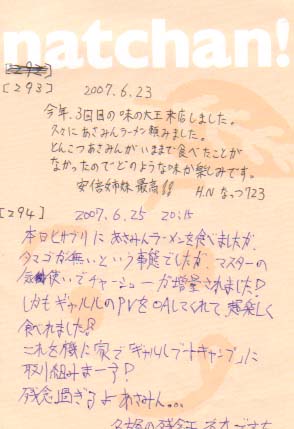 natchan!
[292]
[293] 2007.6.23
今年、3回目の味の大王来店しました。
久々にあさみんラーメン頼みました。
とんこつあさみんがいままで食べたことが
なかったのでどのような味か楽しみです。
安倍姉妹最高!! H.N なっつ723
[294] 2007.6.25 20:15
本日ヒサブリにあさみんラーメンを食べましたが、
タマゴが無いという事態でしたが、マスターの
気使いでチャーシューが増量されました!
しかもギャルルのPVをOAしてくれて、楽しく
食べれました!
これを機に家で「ギャルルブートキャンプ」に
取り組みまーす!
残念過ぎるよあさみん。。。